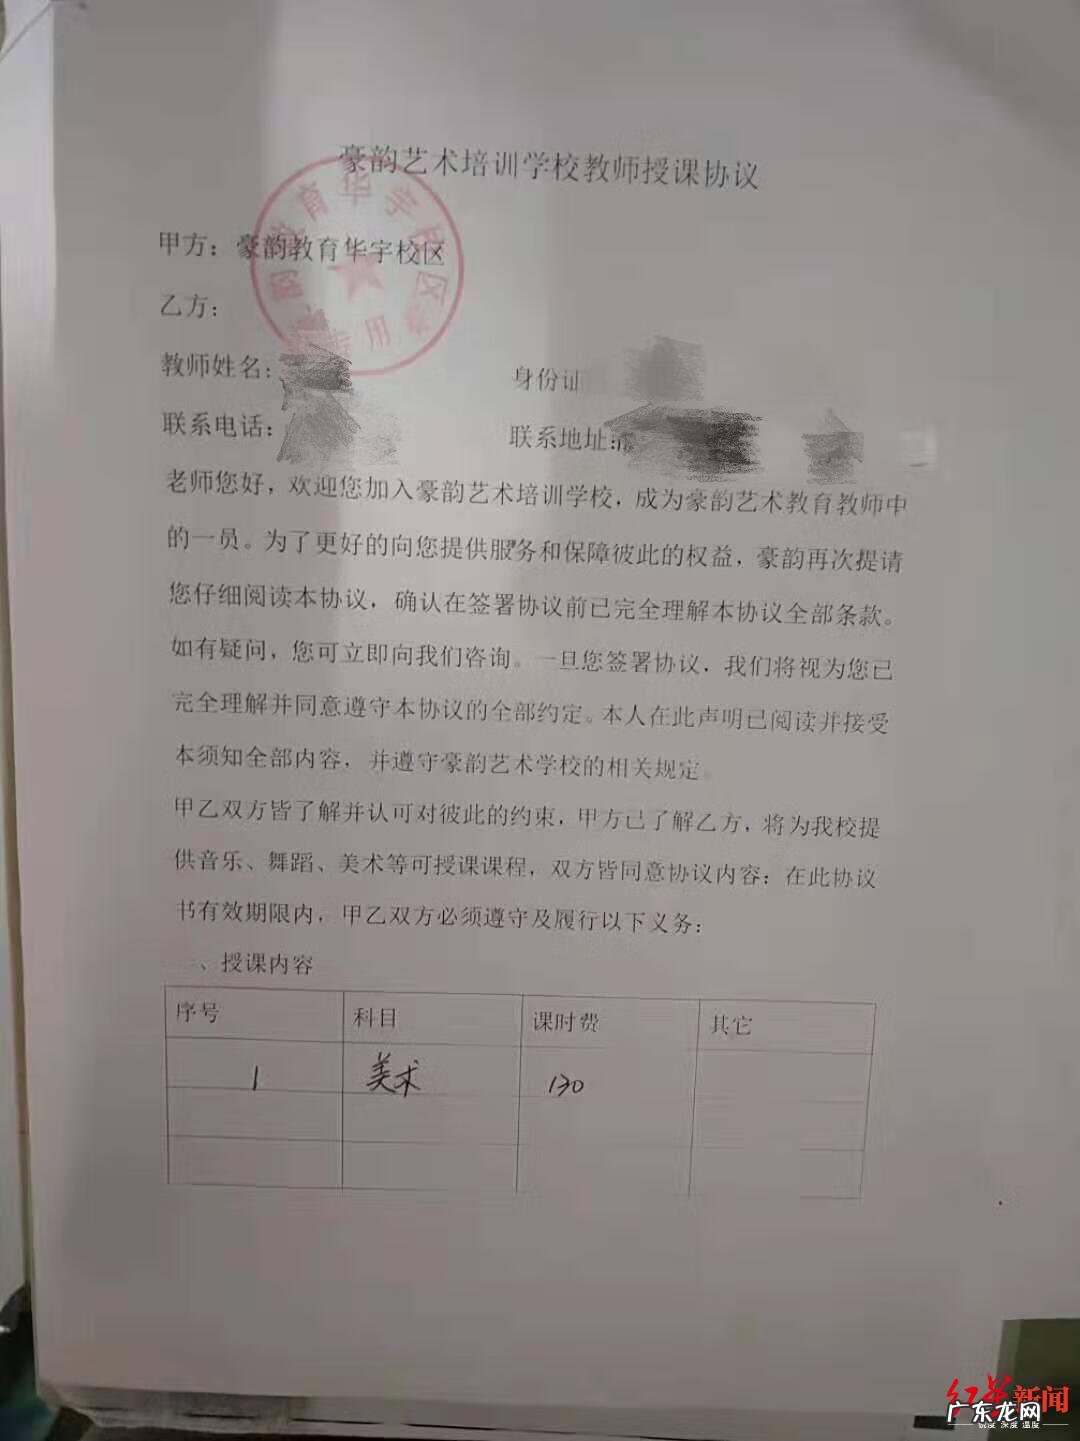 豪韵艺术培训学校教师授课协议
甲方：豪韵教育华宇校区
乙方：
教师姓名：
身份证
联系电话：
联系地址：
老师您好，欢迎您加入豪韵艺术培训学校，成为豪韵艺术教育教师中
的一员。为了更好的向您提供服务和保障彼此的权益，豪韵再次提请
您仔细阅读本协议，确认在签署协议前已完全理解本协议全部条款。
如有疑问，您可立即向我们咨询。一旦您签署协议，我们将视为您已
完全理解并同意遵守本协议的全部约定。本人在此声明已阅读并接受
本须知全部内容，并遵守豪韵艺术学校的相关规定。
甲乙双方皆了解并认可对彼此的约束，甲方已了解乙方，将为我校提
供音乐、舞蹈、美术等可授课课程，双方皆同意协议内容：在此协议
书有效期限内，甲乙双方必须遵守及履行以下义务：
一、授课内容
序号 科目 课时费 其它
1 美术 130
红星新闻
广东龙网
锐度 深度 温度